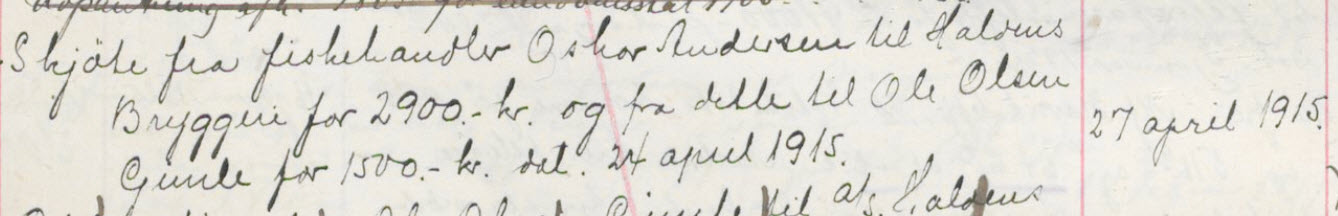 Skjøte fra fiskehandler Oskar Andersen til Haldens
Bryggeri for 2900.- kr. og fra dette til Ole Olsen
Gimle for 1500.- kr. dat. 24 april 1915.
27 april 1915.
Ole Olsen Gimle til a/s. Haldens